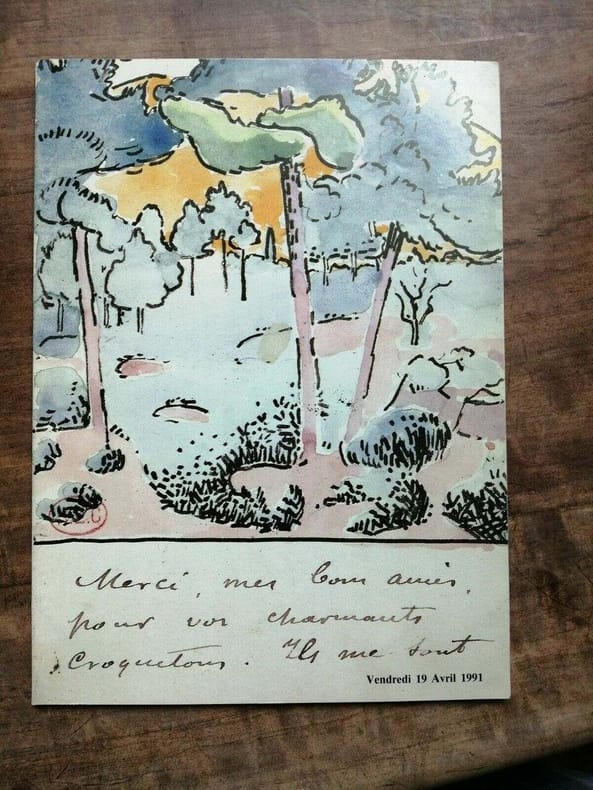 Merci, mes bons amis,
pour vos charmants
Croquetons. Ils me sont
Vendredi 19 Avril 1991